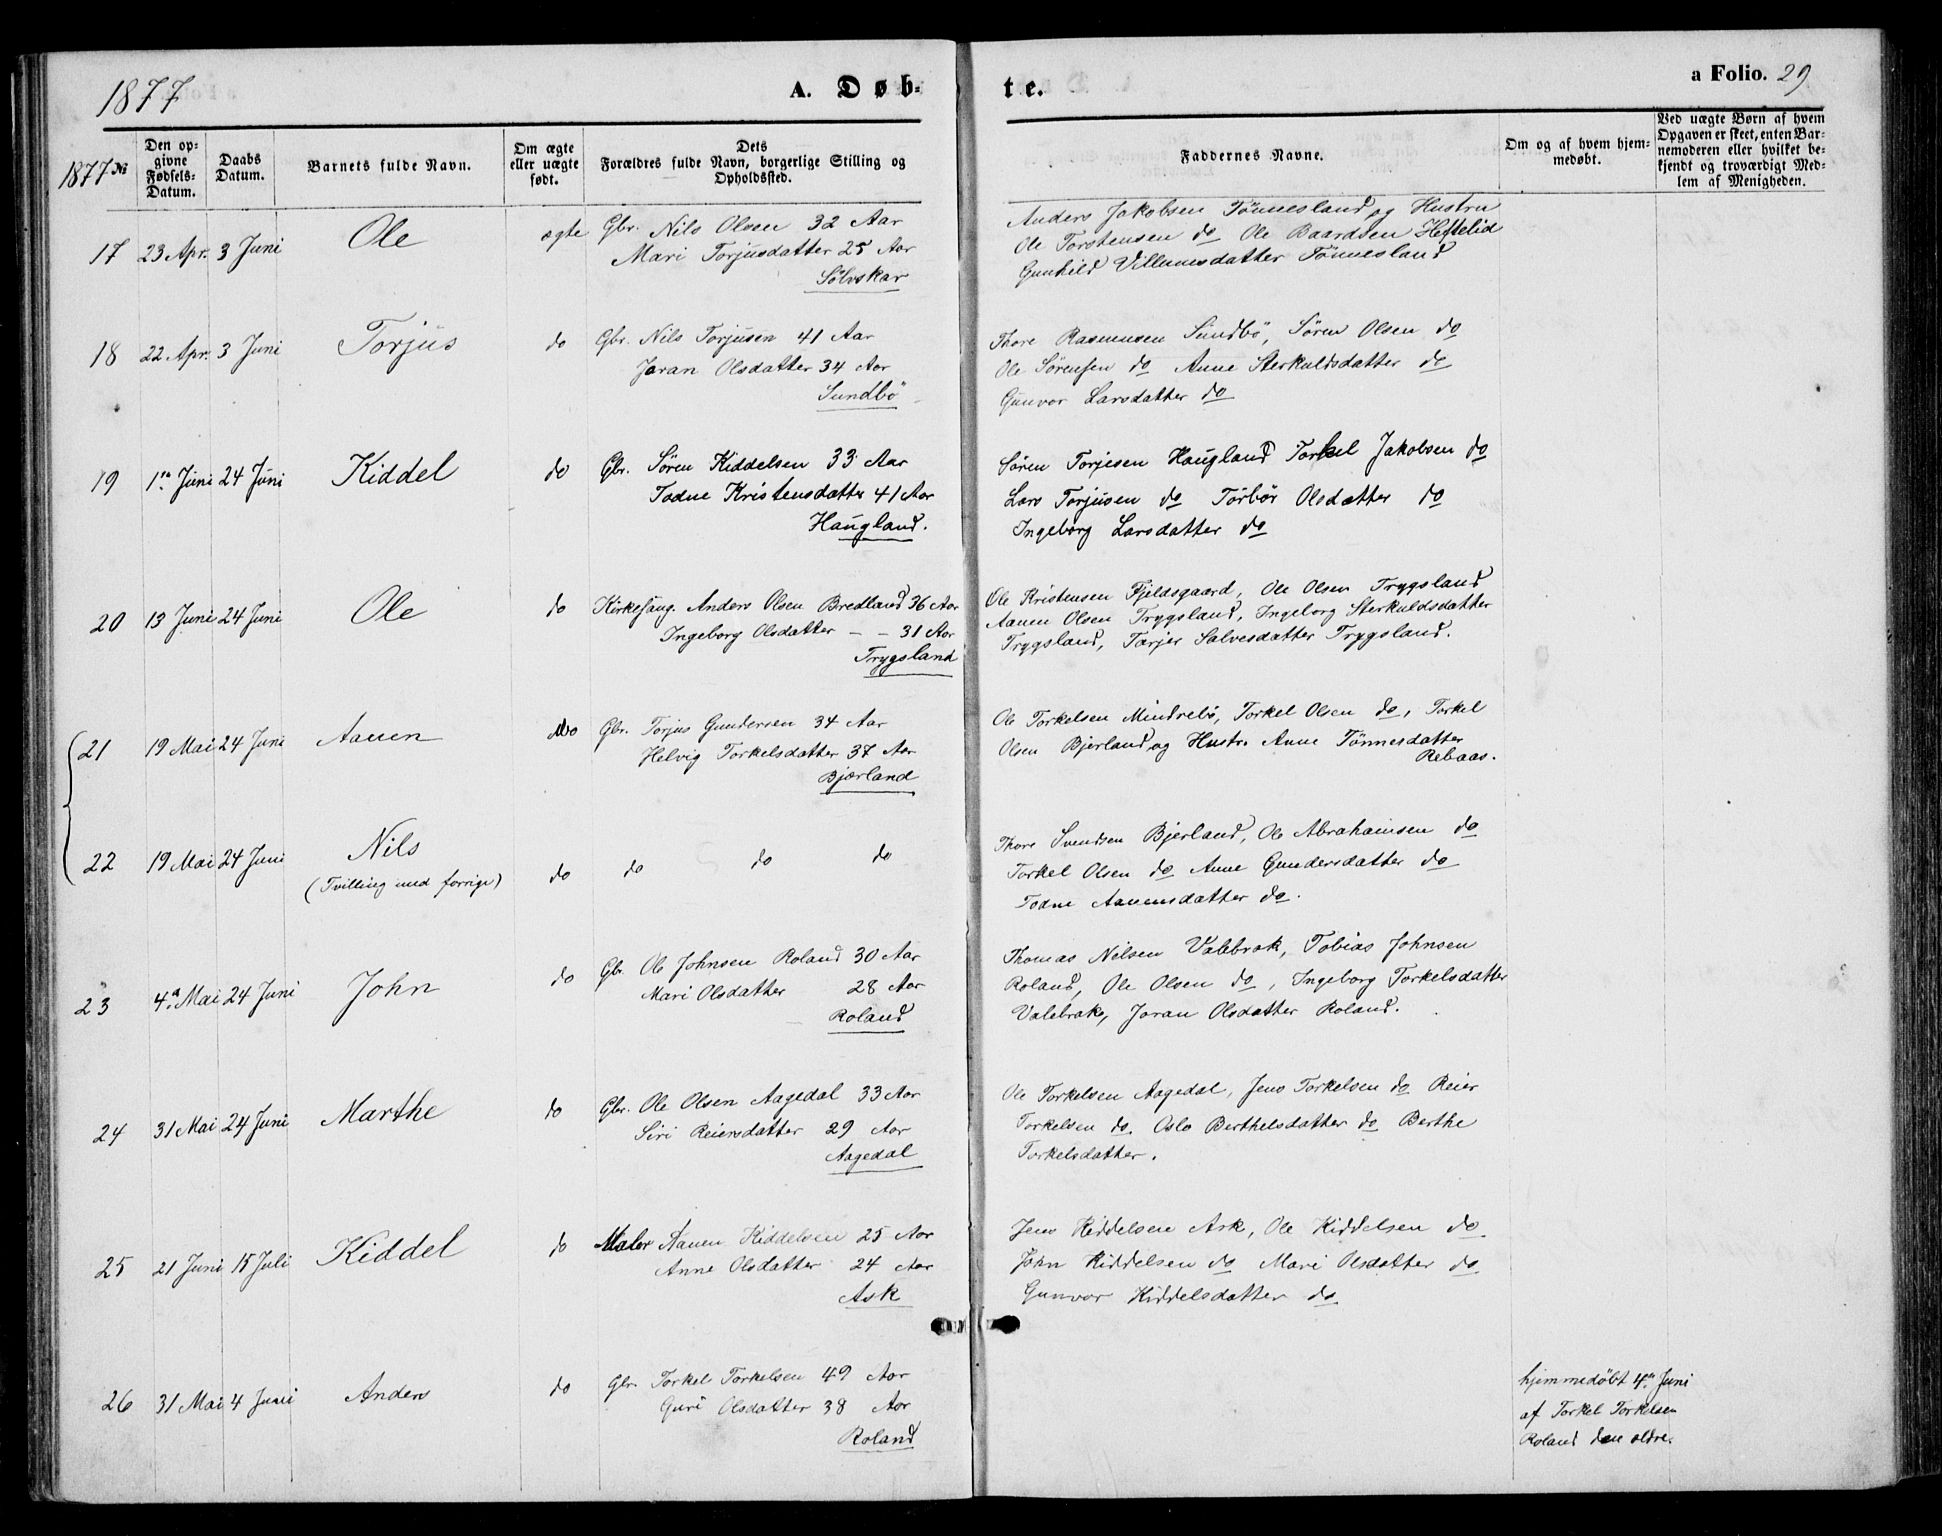 1877
A. Døb-
te.
a Folio. 29
1877 №
Den op-
givne
Fødsels-
Datum.
Daabs
Datum.
Barnets fulde Navn.
Om ægte
eller uægte
født.
Dets
Forældres fulde Navn, borgerlige Stilling og
Opholdssted.
Faddernes Navne.
Om og af hvem hjem-
medøbt.
Ved uægte Børn af hvem
Opgaven er skeet, enten Bar-
nemoderen eller hvilket be-
kjendt og troværdigt Med-
lem af Menigheden.
17 23 Apr. 3 Juni Ole ægte Gbr. Nils Olsen 32 Aar
Mari Torjusdatter 25 Aar
Sölvskar
Anders Jakobsen Tönnesland og Hustru
Ole Torstensen do Ole Baardsen Heftelid
Gunhild Villumsdatter Tönnesland
18 22 Apr. 3 Juni Torjus do Gbr. Nils Torjusen 41 Aar
Joran Olsdatter 34 Aar
Sundbö
Thore Rasmussen Sundbö, Sören Olsen do
Ole Sörensen do Anne Sterkuldsdatter do
Gunvor Larsdatter do
19 1n Juni 24 Juni Kiddel do Gbr. Sören Kiddelsen 33 Aar
Todne Kristensdatter 41 Aar
Haugland.
Sören Torjesen Haugland Torkel Jakobsen do
Lars Torjusen do Torbör Olsdatter do
Ingeborg Larsdatter do
20 13 Juni 24 Juni Ole do Kirkesang. Anders Olsen Bredland 36 Aar
Ingeborg Olsdatter - - 31 Aar
Trygsland
Ole Kristensen Fjeldsgaard, Ole Olsen Trygsland
Aanen Olsen Trygsland, Ingeborg Sterkuldsdatter
Trygsland, Tarjer Salvesdatter Trygsland.
21 19 Mai 24 Juni Aanen do Gbr. Torjus Gundersen 34 Aar
Helvig Torkelsdatter 37 Aar
Bjerland
Ole Torkelsen Mindrebö, Torkel Olsen do, Torkel
Olsen Bjerland og Hustr. Anne Tönnesdatter
Rebaas.
22 19 Mai 24 Juni Nils do do do do
(Tvilling med forrige)
Thore Svendsen Bjerland, Ole Abrahamsen do
Torkel Olsen do Anne Gundersdatter do
Todne Aanensdatter do.
23 4a Mai 24 Juni John do Gb. Ole Johnsen Roland 30 Aar
Mari Olsdatter 28 Aar
Roland
Thomas Nilsen Valebrok, Tobias Johnsen
Roland, Ole Olsen do, Ingeborg Torkelsdatter
Valebrok, Joran Olsdatter Roland.
24 31 Mai 24 Juni Marthe do Gbr. Ole Olsen Aagedal 33 Aar
Siri Reiersdatter 29 Aar
Aagedal
Ole Torkelsen Aagedal, Jens Torkelsen do Reier
Torkelsen do. Oslo Berthelsdatter do Berthe
Torkelsdatter.
25 21 Juni 15 Juli Kiddel do Maler Aanen Kiddelsen 25 Aar
Anne Olsdatter 24 Aar
Ask
Jens Kiddelsen Ask, Ole Kiddelsen do.
John Kiddelsen do Mari Olsdatter do
Gunvor Kiddelsdatter do
26 31 Mai 4 Juni Anders do Gbr. Torkel Torkelsen 49 Aar
Guri Olsdatter 38 Aar
Roland
hjemmedöbt 4n Juni
af Torkel Torkelsen
Roland den ældre.